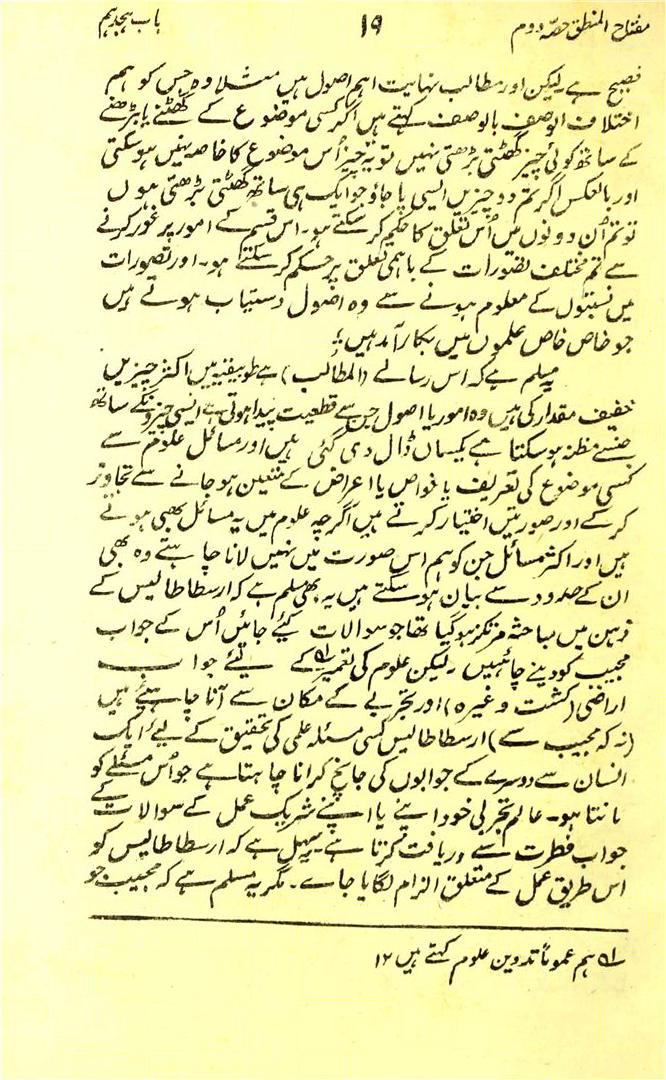 مفتاح المنطق حصہ دوم
۱۹
باب ہجدہم
فصیح ہے لیکن اور مطالب نہایت اہم اصول ہیں مثلاً وہ جس کو ہم
اختلاف الوصف بالوصف کہتے ہیں اگر کسی موضوع کے گھٹنے یا بڑھنے
کے ساتھ کوئی چیز گھٹتی بڑھتی نہیں تو یہ چیز اُس موضوع کا خاصہ نہیں ہو سکتی
اور بالعکس اگر تم دو چیزیں ایسی پا جاؤ جو ایک ہی ساتھ گھٹتی بڑھتی ہوں
تو تم اُن دونوں میں اُس تعلق کا حکم کر سکتے ہو۔ اس قسم کے امور پر غور کرنے
سے تم مختلف تصورات کے باہمی تعلق پر حکم کر سکتے ہو۔ اور تصورات
میں نسبتوں کے معلوم ہونے سے وہ اصول دستیاب ہوتے ہیں
جو خاص خاص علموں میں بکار آمد ہیں؛
یہ مسلم ہے کہ اس رسالے (المطالب) ہے طوبیقیہ میں اکثر چیزیں
خفیف مقدار کی ہیں وہ امور یا اصول جن سے قطعیت پیدا ہوتی ہے ایسی چیزونکے ساتھ
جنسے مظنہ ہو سکتا ہے یکساں ڈال دی گئی ہیں اور مسائل علوم سے
کسی موضوع کی تعریف یا خواص یا اعراض کے متعین ہو جانے سے تجاوز
کر کے اور صورتیں اختیار کرتے ہیں اگرچہ علوم میں یہ مسائل بھی ہوتے
ہیں اور اکثر مسائل جن کو ہم اس صورت میں نہیں لانا چاہتے وہ بھی
ان کے حدود سے بیان ہو سکتے ہیں یہ بھی مسلم ہے کہ ارسطاطالیس کے
ذہن میں مباحثہ مرتکز ہو گیا تھا جو سوالات کیئے جائیں اُس کے جواب
مجیب کو دینے چاہئیں۔ لیکن علوم کی تعمیر؂۱ کے لیئے جواب
اراضی (کشت وغیرہ) اور تجربے کے مکان سے آنا چاہیئے ہیں
(نہ کہ مجیب سے) ارسطاطالیس کسی مسئلہ علمی کی تحقیق کے لیے ایک
انسان سے دوسرے کے جوابوں کی جانچ کرانا چاہتا ہے جو اُس مسئلے کو
مانتا ہو۔ عالم تجربی خود اپنے یا اپنے شریک عمل کے سوالات کے
جواب فطرت سے دریافت کرتا ہے۔ یہ سہل ہے کہ ارسطاطالیس کو
اس طریق عمل کے متعلق الزام لگایا جاے۔ مگر یہ مسلم ہے کہ مجیب جو
؂۱ ہم عموماً تدوین علوم کہتے ہیں ۱۲